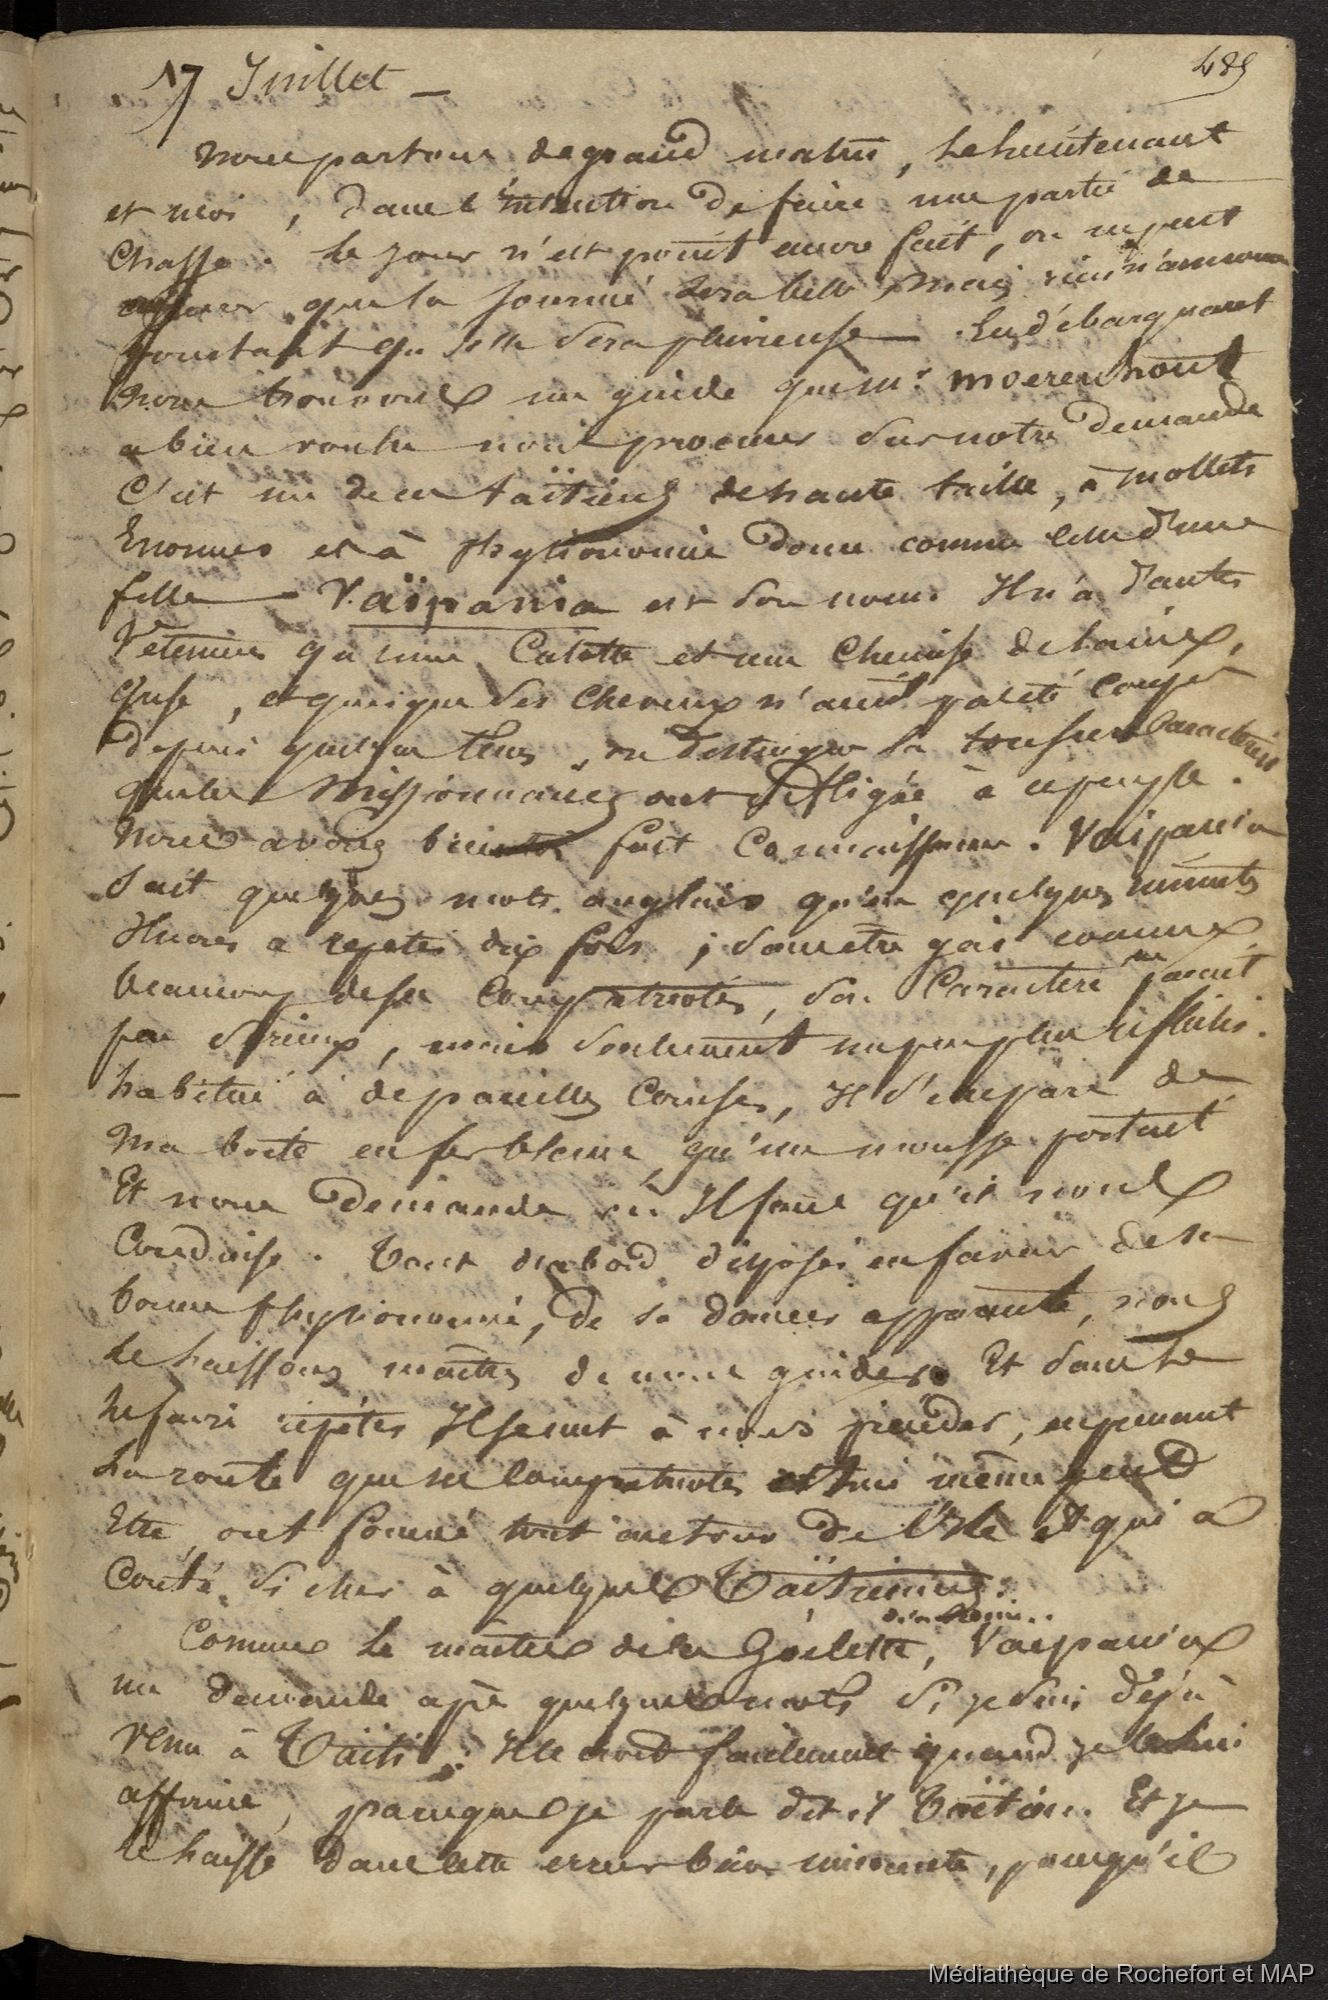 17 Juillet _
485
Nous partons de grand matin, le lieutenant
et moi, dans l'Intention de faire une partie de
Chasse. Le jour n'est point encore fait, on ne peut
assurer que la journée sera belle, mais rien n'annonce
pourtant qu'elle sera pluvieuse _ En débarquant
nous trouvons un guide que mr. moerenhout
a bien voulu nous procurer sur notre demande
C'est un de ces taïtiens de haute taille, à mollets
Enormes et à physionomie douce comme celle d'une
fille _ Vaïpania est son nom. Il n'a d'autres
Vêtemens qu'une Calotte et une Chemise de laine
, et quoique ses cheveux n'aient pas été coupés
depuis quelque tems, on distingue la tonsure Caractéris
que les Missionnaires ont infligée à ce peuple.
Nous avons bientôt fait Connaissance. Vaipania
sait quelques mots anglais qu'en quelques minutes
Il nous a répétés dix fois ; sans être gai comme
beaucoup de ses Compatriotes, son Caractère ne parait
pas sérieux, mais seulement un peu plus réfléchi.
habitué à de pareilles Courses, Il s'empare de
Ma boite en fer blanc qu'un mousse portait
Et nous demande où Il faut qu'il nous
Conduise. Tout d'abord disposés en faveur de sa
bonne physionomie, de sa douceur apparente, nous
le laissons maître de nous guider. Et sans se
le faire répéter Il se met à nous précéder, en prenant
La route que ses Compatriotes et lui même peut
Etre, ont formé tout autour de l'Isle et qui a
Coûté si cher à quelques Taïtiennes.
Comme le maître de la Goëlette, Vaipania
me demande après quelques mots si je suis déjà
venu à Taïti. Il le croit facilement quand je le lui
affirme, parceque je parle dit-il Taïtien. Et je
le laisse dans cette erreur bien innocente, puisqu'il
Médiathèque de Rochefort et MAP